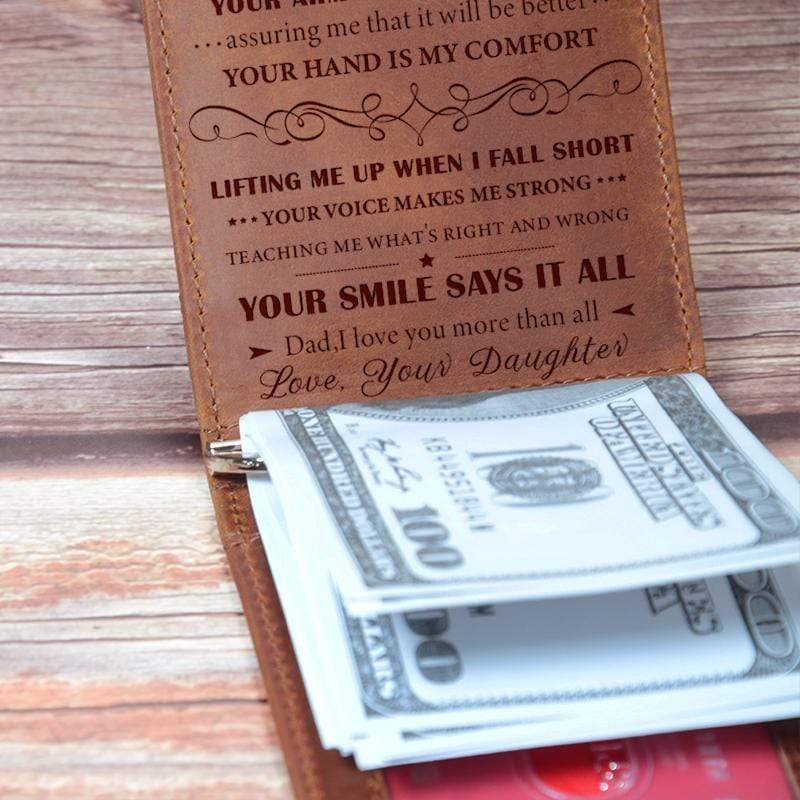 YOUR
...assuring me that it will be better..
YOUR HAND IS MY COMFORT
LIFTING ME UP WHEN I FALL SHORT
YOUR VOICE MAKES ME STRONG
TEACHING ME WHAT'S RIGHT AND WRONG
YOUR SMILE SAYS IT ALL
Dad,I love you more than all
Love, Your Daughter
ONE HUNDRED DOLLARS
100